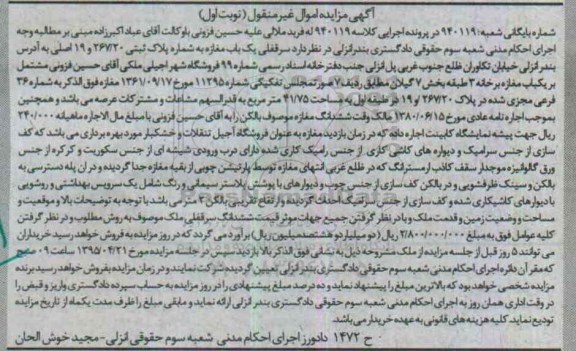 آگهی مزایده اموال غیر منقول (نوبت اول)
شماره بایگانی شعبه: ۹۴۰۱۱۹ در پرونده اجرایی کلاسه ۹۴۰۱۱۹ له فرید ملالی علیه حسین فزونی باوکالت آقای عباد اکبرزاده مبنی بر مطالبه وجه
اجرای احکام مدنی شعبه سوم حقوقی دادگستری بندرانزلی در نظر دارد سرقفلی یک باب مغازه به شماره پلاک ثبتی ۲۶۷/۲۰ و ۱۹ اصلی به آدرس
بندر انزلی خیابان تکاوران ضلع جنوب غربی پل انزلی جنب دفترخانه اسناد رسمی شماره ۹۹ فروشگاه شهر اجیلی ملکی آقای حسین فزونی مشتمل
بر یکباب مغازه بر خانه ۳ طبقه بخش ۷ گیلان مطابق ردیف ۷ صورتمجلس تفکیکی شماره ۱۱۲۹۵ مورخ ۱۳۶۱/۰۹/۱۷ مغازه فوق الذکر به شماره ۳۶
فرعی مجزی شده در پلاک ۲۶۷/۲۰ و ۱۹ در طبقه اول به مساحت ۴۱/۷۵ متر مربع به قدرالسهم مشاعات و مشترکات عرصه می باشد و همچنین
بموجب اجاره نامه عادی مورخ ۱۳۸۰/۰۶/۱۵ مالک وقت ششدانگ مغازه موصوف بالکن را به آقای حسین فزونی با مبلغ مال الاجاره ماهیانه ۲۴۰/۰۰۰
ریال جهت پیشه نمایشگاه کابینت اجاره داده که در زمان بازدید مغازه به عنوان فروشگاه آجیل تنقلات و خشکبار مورد بهره برداری می باشد که کف
سازی از جنس سرامیک و دیواره های کاشی کاری از جنس رامیک کاری شده دارای درب ورودی شیشه ای از جنس سکوریت و کرکره از جنس
ورق گالوانیزه موجدار سقف کاذب آرمسترانگ که در ظلع غربی انتهای مغازه توسط پارتیشن چوبی از بقیه مغازه جدا گردیده و در ان پله دسترسی به
بالکن و سینک ظرفشویی و در بالکن کف سازی از جنس چوب و دیوارهای با پوشش پلاستر سیمانی و رنگ شامل یک سرویس بهداشتی و روشویی
با دیوارهای کاشیکاری شده و کف سازی از جنس سرامیک احداث گردیده و ارتفاع تقریبی بالکن ۲ متر می باشد با توجه به توضیحات بالا و موقعیت و
مساحت و وضعیت زمین و قدمت ملک و با در نظر گرفتن جمیع جهات موثر قیمت ششدانگ سرقفلی ملک موصوف به روش مطلوب و در نظر گرفتن
کلیه عوامل فوق به مبلغ ۲/۸۰۰/۰۰۰/۰۰۰ ریال (دو میلیارد و هشتصد میلیون ریال) بر آورد می گردد که در روز مزایده به فروش خواهد رسید خریداران
می توانند ۵ روز قبل از جلسه مزایده از ملک مشروحه ذیل به نشانی فوق الذکر بالا بازدید سپس در جلسه مزایده مورخ ۱۳۹۵/۰۴/۲۱ ساعت ۰۹ صبح
که مقر آن دائره اجرای احکام مدنی شعبه سوم حقوقی دادگستری بندر انزلی تعیین گردیده شرکت نمایند و در زمان مزایده بفروش خواهد رسید برنده
مزایده شخصی خواهد بود که بالاترین مبلغ را پیشنهاد نماید و ده درصد مبلغ پیشنهادی را در روز مزایده به حساب سپرده دادگستری واریز و قبض را
در وقت اداری همان روز به اجرای احکام مدنی شعبه سوم حقوقی دادگستری بندر انزلی ارائه نماید و مابقی مبلغ را ظرف مدت یکماه از تاریخ مزایده
تودیع نماید. کلیه هزینه های قانونی به عهده خریدار می باشد.
ح ۱۴۷۲ دادورز اجرای احکام مدنی شعبه سوم حقوقی انزلی - مجید خوش الحان